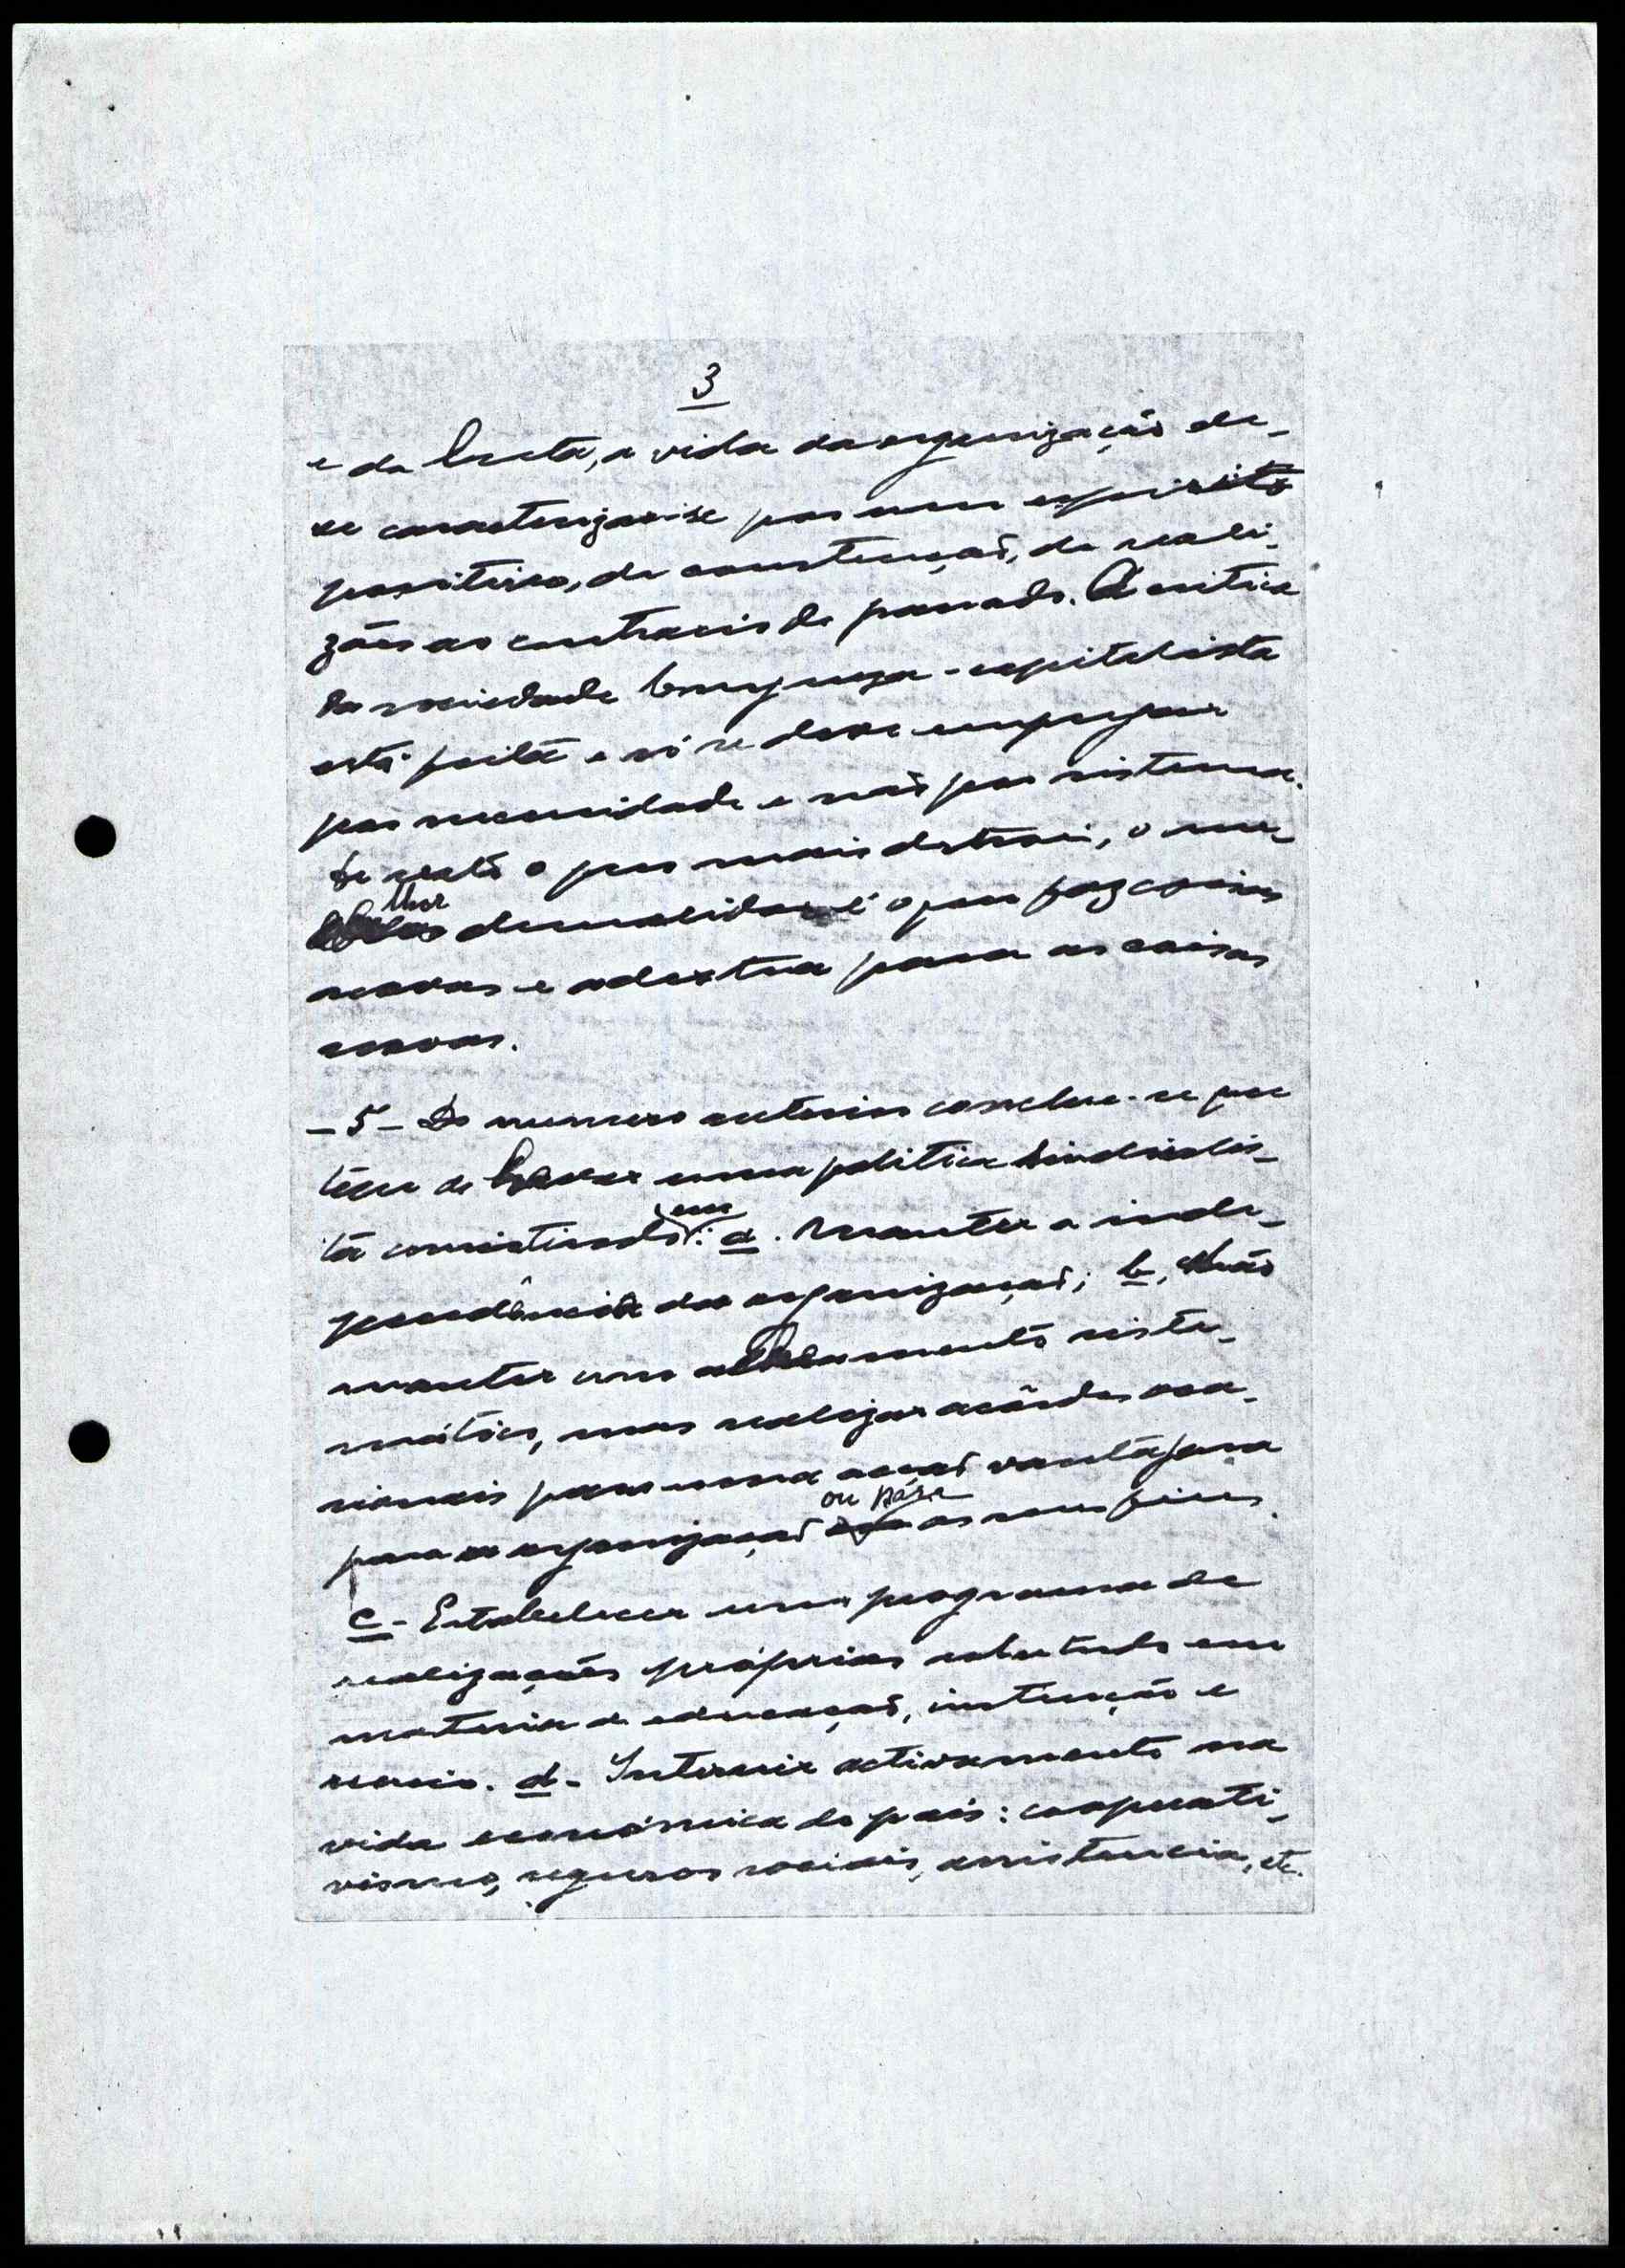 3
e da lucta, a vida da organização de-
ve caracterizar-se por um espirito
positivo, de construção, de reali-
zões ao contrario do passado. A critica
da sociedade burgueza-capitalista
está feita e só se deve empregar
por necessidade e não por sistema.
De resto o que mais destroi, o me-
lhor demolidor é o que faz coisas
novas e adextra para as coisas
novas.
- 5 - Do numero anterior conclue-se que
tem de haver uma politica sindicalis-
ta consistindo em: a. Manter a inde-
pendência da organização; b. Não
manter um isolamento siste-
mático, mas realizar acôrdos oca-
sionais para uma acção vantajosa
para a organização ou para os seus fins.
c - Estabelecer um programa de
realizações próprias sobretudo em
materia de educação, instrução e
recreio. d - Intervir activamente na
vida económica do país: cooperati-
vismo, seguros sociais, assistencia, etc.